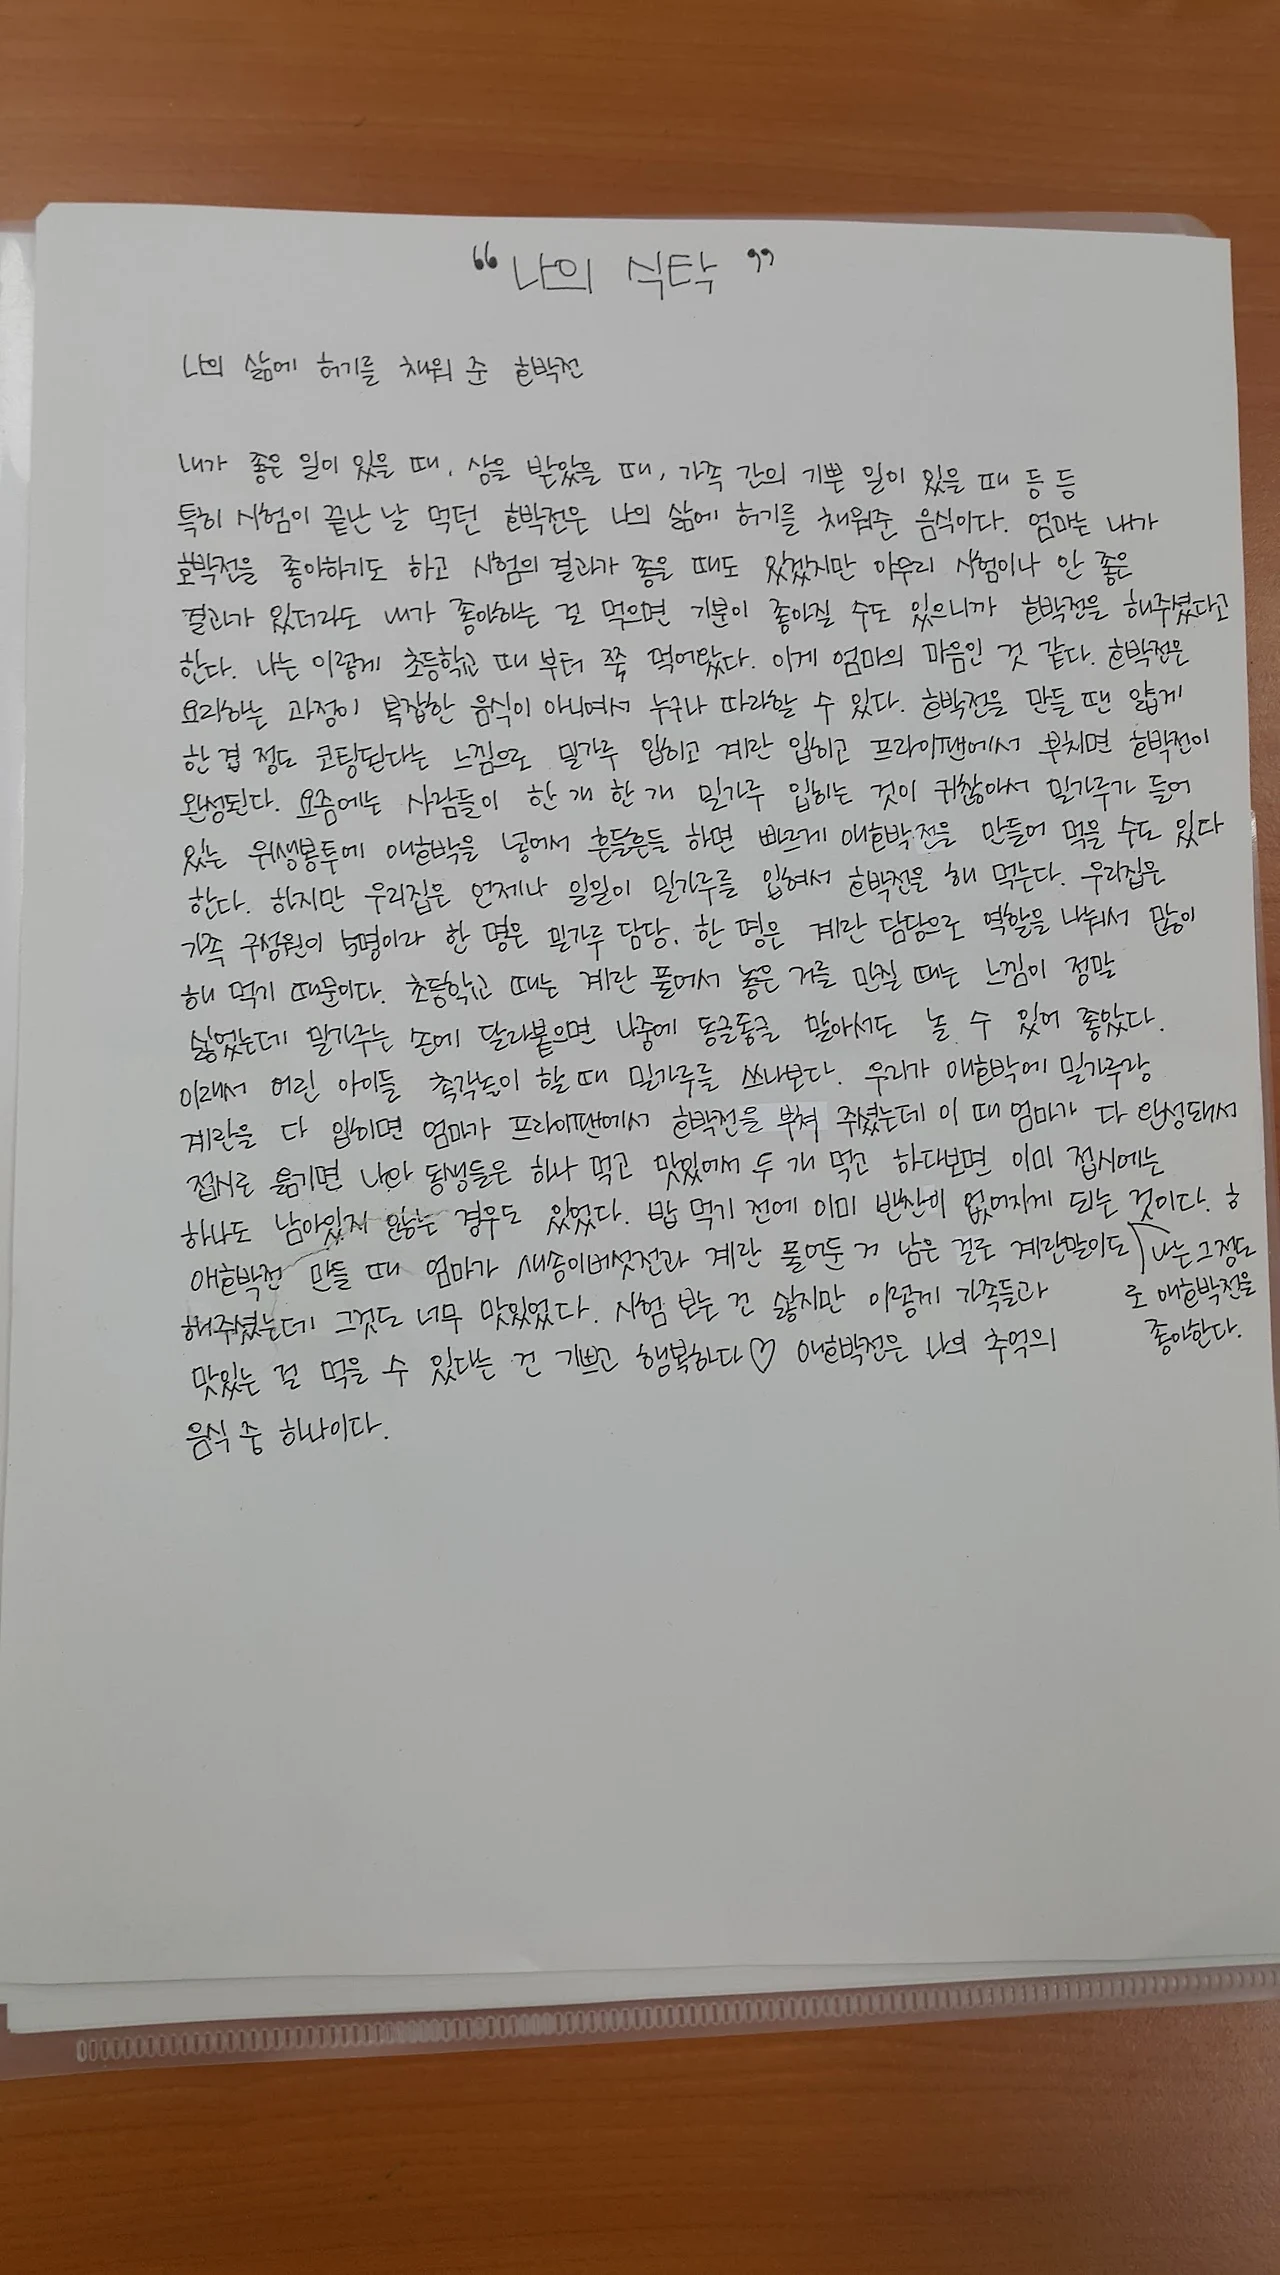 “나의 식탁”
나의 삶에 허기를 채워 준 호박전
내가 좋은 일이 있을 때, 상을 받았을 때, 가족 간의 기쁜 일이 있을 때 등 등
특히 시험이 끝난 날 먹던 호박전은 나의 삶에 허기를 채워준 음식이다. 엄마는 내가
호박전을 좋아하기도 하고 시험의 결과가 좋을 때도 있겠지만 아무리 시험이나 안 좋은
결과가 있더라도 내가 좋아하는 걸 먹으면 기분이 좋아질 수도 있으니까 호박전을 해주셨다고
한다. 나는 이렇게 초등학교 때 부터 쭉 먹어왔다. 이게 엄마의 마음인 것 같다. 호박전은
요리하는 과정이 복잡한 음식이 아니여서 누구나 따라할 수 있다. 호박전을 만들 땐 얇게
한 겹 정도 코팅된다는 느낌으로 밀가루 입히고 계란 입히고 프라이팬에서 부치면 호박전이
완성된다. 요즘에는 사람들이 한 개 한 개 밀가루 입히는 것이 귀찮아서 밀가루가 들어
있는 위생봉투에 애호박을 넣어서 흔들흔들 하면 빠르게 애호박전을 만들어 먹을 수도 있다
한다. 하지만 우리집은 언제나 일일이 밀가루를 입혀서 호박전을 해 먹는다. 우리집은
가족 구성원이 5명이라 한 명은 밀가루 담당, 한 명은 계란 담당으로 역할을 나눠서 많이
해 먹기 때문이다. 초등학교 때는 계란 풀어서 놓은 거를 만질 때는 느낌이 정말
싫었는데 밀가루는 손에 달라붙으면 나중에 동글동글 말아서도 놀 수 있어 좋았다.
이래서 어린 아이들 촉각놀이 할 때 밀가루를 쓰나보다. 우리가 애호박에 밀가루랑
계란을 다 입히면 엄마가 프라이팬에서 호박전을 부쳐 주셨는데 이 때 엄마가 다 완성돼서
접시로 옮기면 나와 동생들은 하나 먹고 맛있어서 두 개 먹고 하다보면 이미 접시에는
하나도 남아있지 않는 경우도 있었다. 밥 먹기 전에 이미 반찬이 없어지게 되는 것이다. ㅎ
나는 그정도
로 애호박전을
좋아한다.
애호박전 만들 때 엄마가 새송이버섯전과 계란 풀어둔 거 남은 걸로 계란말이도
해주셨는데 그것도 너무 맛있었다. 시험 보는 건 싫지만 이렇게 가족들과
맛있는 걸 먹을 수 있다는 건 기쁘고 행복하다♡ 애호박전은 나의 추억의
음식 중 하나이다.